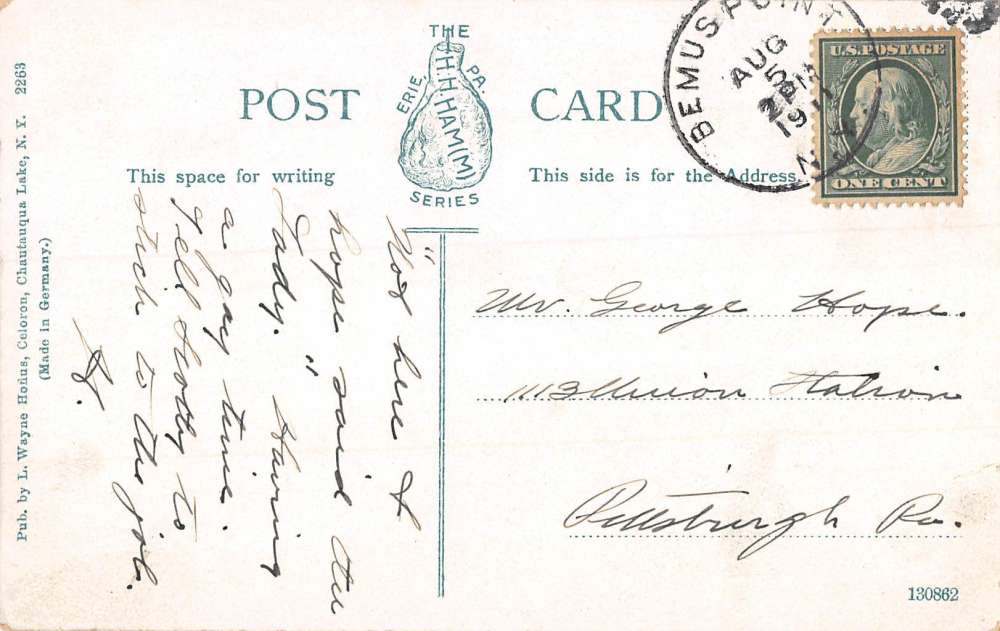 POST CARD
THE
H.H.HAMIMI
ERIE, PA.
SERIES
This space for writing
This side is for the Address
BEMUS POINT
AUG
5
2 PM
1911
N.Y.
U.S. POSTAGE
ONE CENT
"Not here I
hope said the
Lady." Having
a gay time.
Tell Scotty to
stick to the job.
Mr. George Hope.
1113 Union Station
Pittsburgh Pa.
Pub. by L. Wayne Honus, Celoron, Chautauqua Lake, N. Y. 2263
(Made in Germany.)
130862